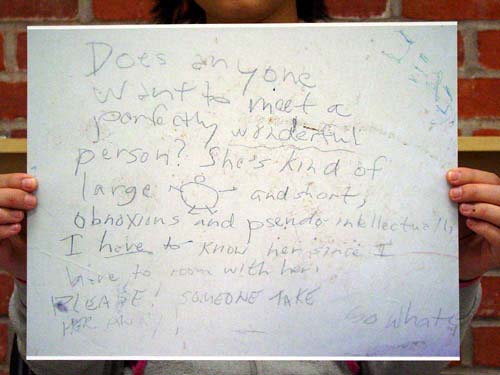 Does anyone
want to meet a
perfectly wonderful
person? She's kind of
large and short,
obnoxious and pseudo intellectually
I have to know her since I
have to room with her.
PLEASE! SOMEONE TAKE
HER AWAY!
So what?